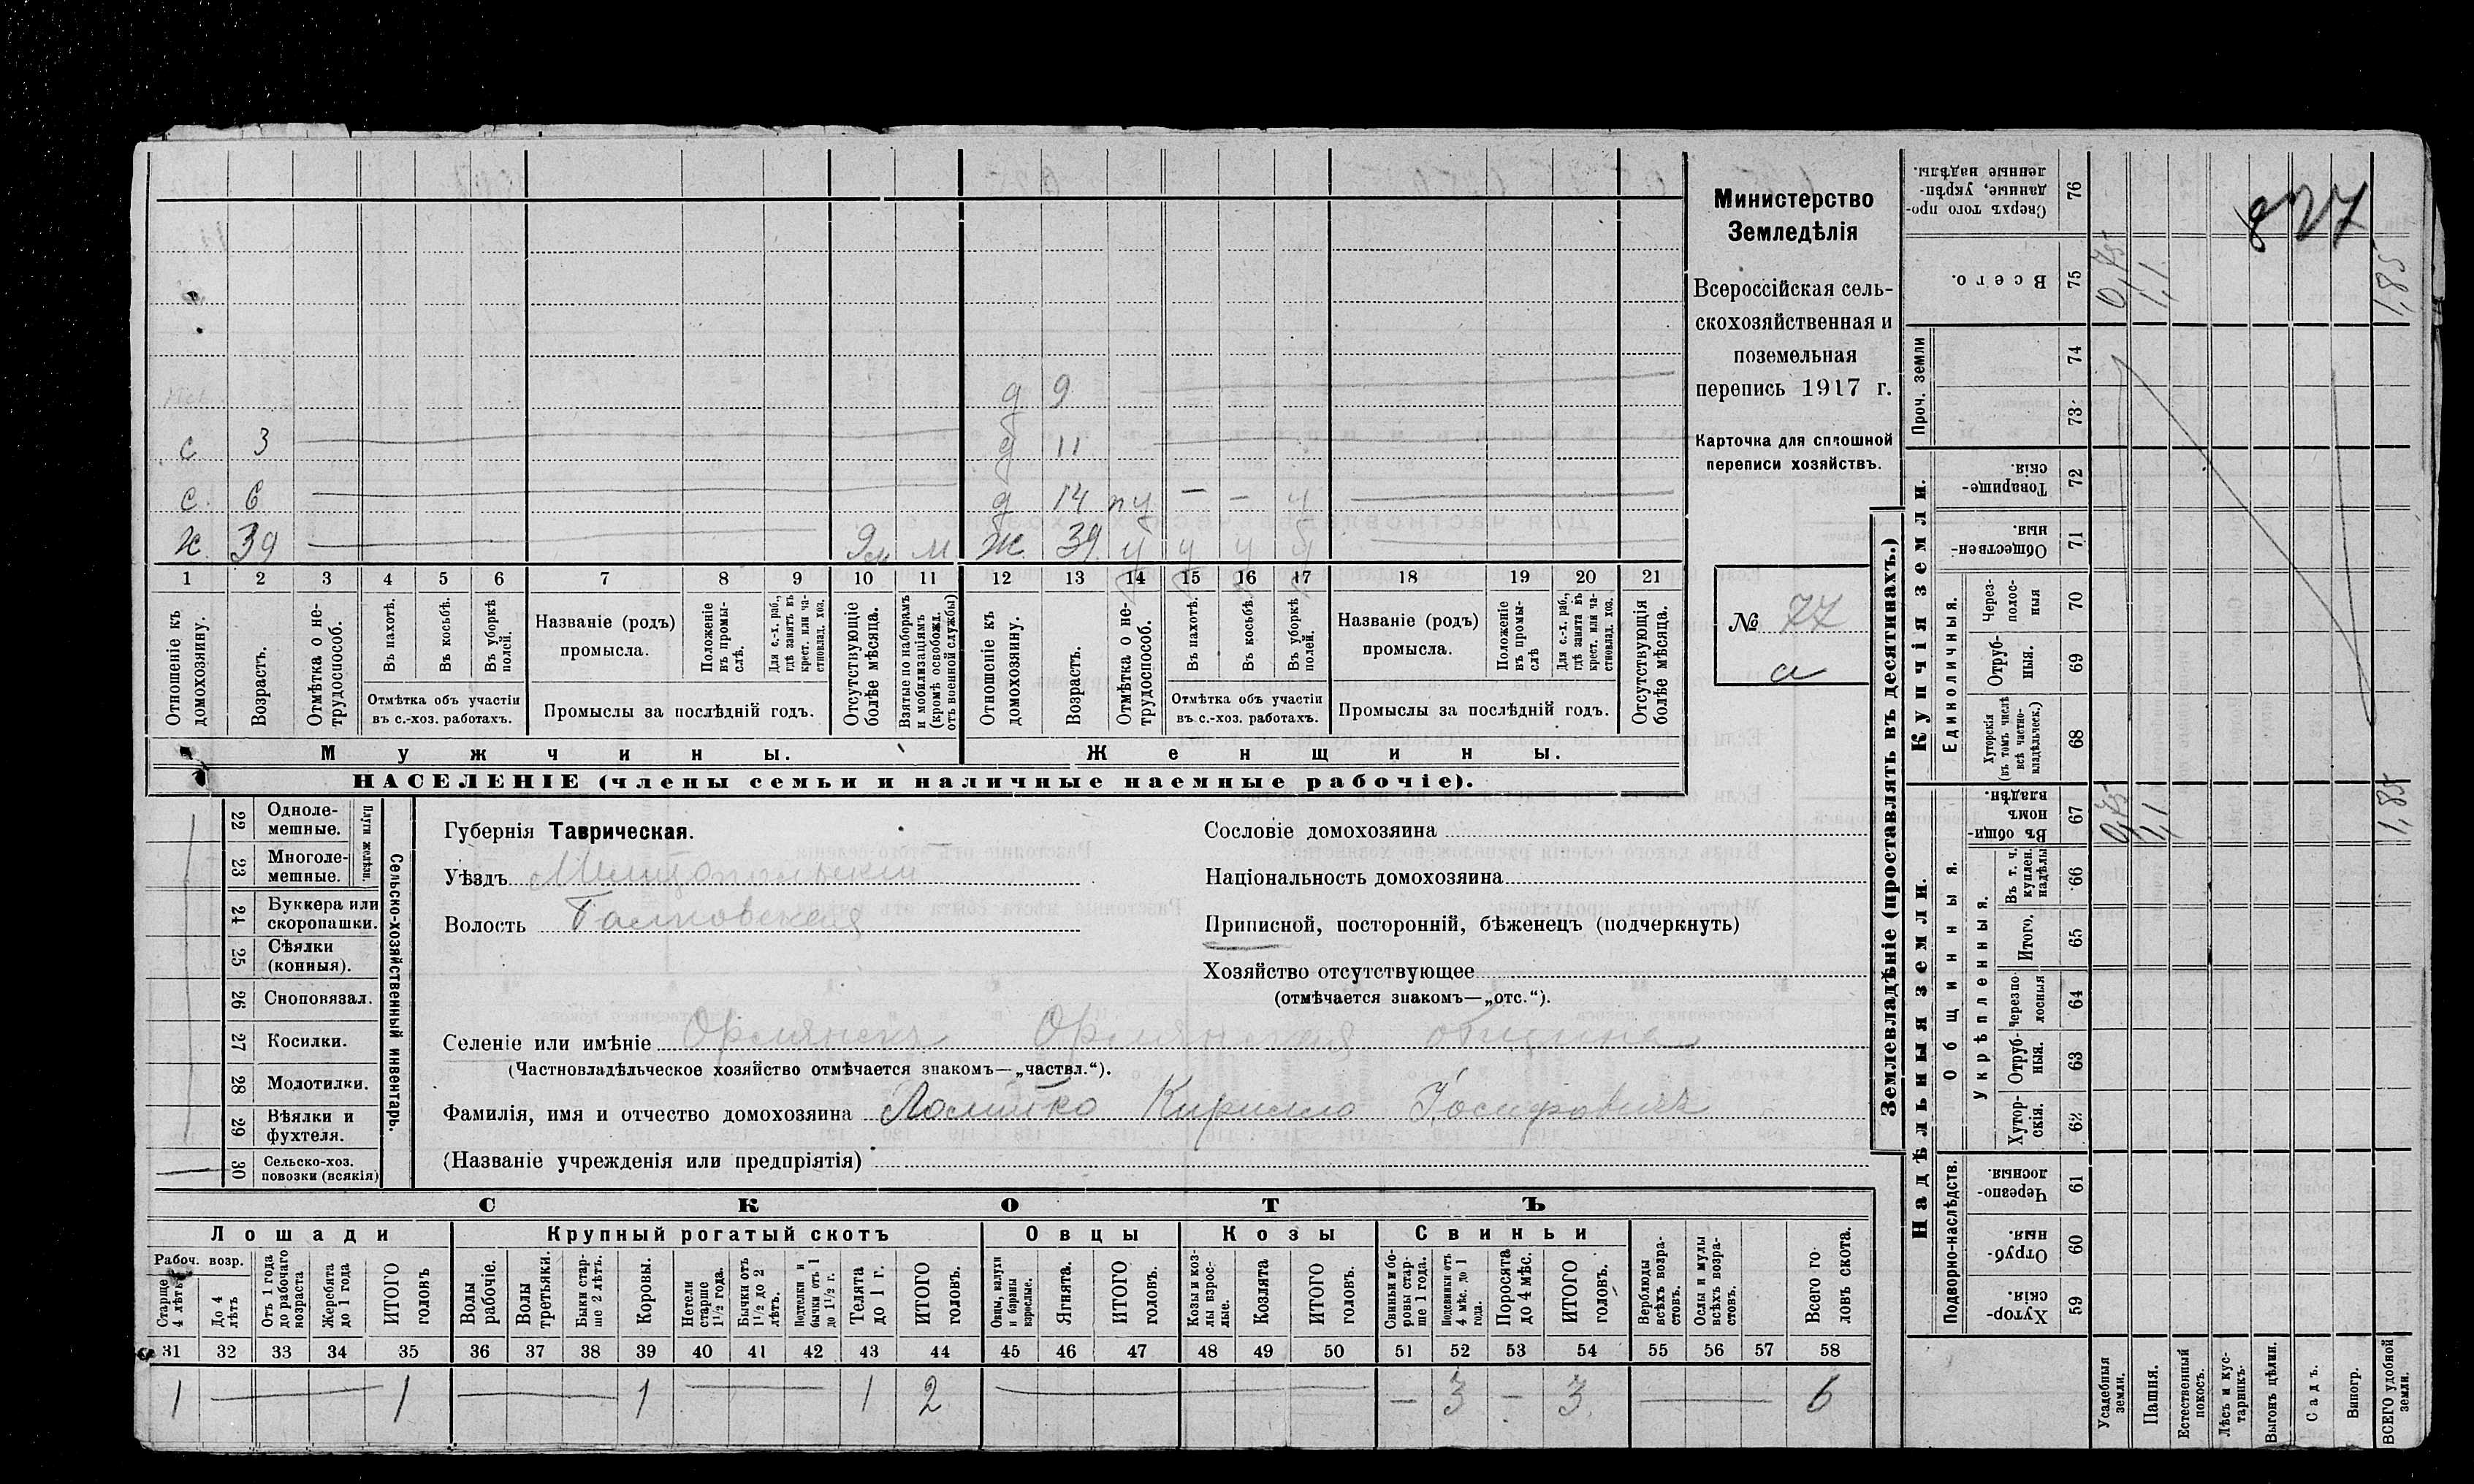 д 9
с 3 д 11
с. 6 д 14 пу — — у
х. 39 9м м ж 39 у у у у
1 2 3 4 5 6 7 8 9 10 11 12 13 14 15 16 17 18 19 20 21
Отношеніе къ домохозяину.
Возрастъ.
Отмѣтка о не-
трудоспособ.
Въ пахотѣ.
Въ косьбѣ.
Въ уборкѣ
полей.
Отмѣтка объ участіи
въ с.-хоз. работахъ.
Названіе (родъ)
промысла.
Положеніе
въ промы-
слѣ.
Для с.-х. раб.,
гдѣ занятъ въ
крест. или ча-
стновлад. хоз.
Промыслы за послѣдній годъ.
Отсутствующіе
болѣе мѣсяца.
Взятые по наборамъ
и мобилизаціямъ
(кромѣ освобожд.
отъ военной службы)
Отношеніе къ
домохозяину.
Возрастъ.
Отмѣтка о не-
трудоспособ.
Въ пахотѣ.
Въ косьбѣ.
Въ уборкѣ
полей.
Отмѣтка объ участіи
въ с.-хоз. работахъ.
Названіе (родъ)
промысла.
Положеніе
въ промы-
слѣ
Для с.-х. раб.,
гдѣ занята въ
крест. или ча-
стновлад. хоз.
Промыслы за послѣдній годъ.
Отсутствующія
болѣе мѣсяца.
Мужчины.
Женщины.
НАСЕЛЕНІЕ (члены семьи и наличные наемные рабочіе).
Министерство
Земледѣлія
Всероссійская сель-
скохозяйственная и
поземельная
перепись 1917 г.
Карточка для сплошной
переписи хозяйствъ.
№ 77
а
22 Одноле-
мешные.
23 Многоле-
мешные.
Плуги желѣзн.
24 Буккера или
скоропашки.
25 Сѣялки
(конныя).
26 Сноповязал.
27 Косилки.
28 Молотилки.
29 Вѣялки и
фухтеля.
30 Сельско-хоз.
повозки (всякія)
Сельско-хозяйственный инвентарь.
Губернія Таврическая.
Уѣздъ Мелитопольскій
Волость
Сословіе домохозяина
Національность домохозяина
Приписной, посторонній, бѣженецъ (подчеркнуть)
Хозяйство отсутствующее
(отмѣчается знакомъ—„отс.“).
Селеніе или имѣніе Орлянскъ Орлянская община
(Частновладѣльческое хозяйство отмѣчается знакомъ—„частвл.“).
Фамилія, имя и отчество домохозяина Ломийко Кирилло Іосифовичъ
(Названіе учрежденія или предпріятія)
СКОТЪ
Лошади
Крупный рогатый скотъ
Овцы
Козы
Свиньи
Рабоч. возр.
Старше
4 лѣтъ
До 4
лѣтъ
Отъ 1 года
до рабочаго
возраста
Жеребята
до 1 года
ИТОГО
головъ
Волы
рабочіе.
Волы
третьяки.
Быки стар-
ше 2 лѣтъ.
Коровы.
Нетели
старше
1½ года.
Бычки отъ
1½ до 2
лѣтъ.
Подтелки и
бычки отъ 1
до 1½ г.
Телята
до 1 г.
ИТОГО
головъ.
Овцы, валухи
и бараны
взрослые.
Ягнята.
ИТОГО
головъ.
Козы и коз-
лы взрос-
лые.
Козлята
ИТОГО
головъ.
Свиньи и бо-
ровы стар-
ше 1 года.
Подсвинки отъ
4 мѣс. до 1
года.
Поросята
до 4 мѣс.
ИТОГО
головъ.
Верблюды
всѣхъ возра-
стовъ.
Ослы и мулы
всѣхъ возра-
стовъ.
Всего го-
ловъ скота.
31 32 33 34 35 36 37 38 39 40 41 42 43 44 45 46 47 48 49 50 51 52 53 54 55 56 57 58
1 — 1 — 1 — 1 2 — — 3 — 3 — 6
Землевладѣніе (проставлять въ десятинахъ.)
Купчія земли.
Надѣльныя земли.
Сверхъ того про-
данные, укрѣп-
ленные надѣлы.
76
827
Всего.
75
0,75
1,1
1,85
Проч. земли
74
73
Товарище-
скія.
72
Обществен-
ныя.
71
Единоличныя.
Через-
полос-
ныя
70
Отруб-
ныя.
69
Хуторскія
(въ томъ числѣ
всѣ частно-
владѣльческ.)
68
Общинныя.
Въ общин-
номъ
владѣн.
67
0,75
1,1
1,85
Укрѣпленныя.
Въ т. ч.
куплен.
надѣлы
66
Итого.
65
Черезпо-
лосныя
64
Отруб-
ныя.
63
Хутор-
скія.
62
Подворно-наслѣдств.
Черезпо-
лосныя
61
Отруб-
ныя.
60
Хутор-
скія.
59
Усадебныя
земли.
Пашня.
Естественный
покосъ.
Лѣсъ и кус-
тарникъ.
Выгонъ цѣлин.
Садъ.
Виногр.
ВСЕГО удобной
земли.